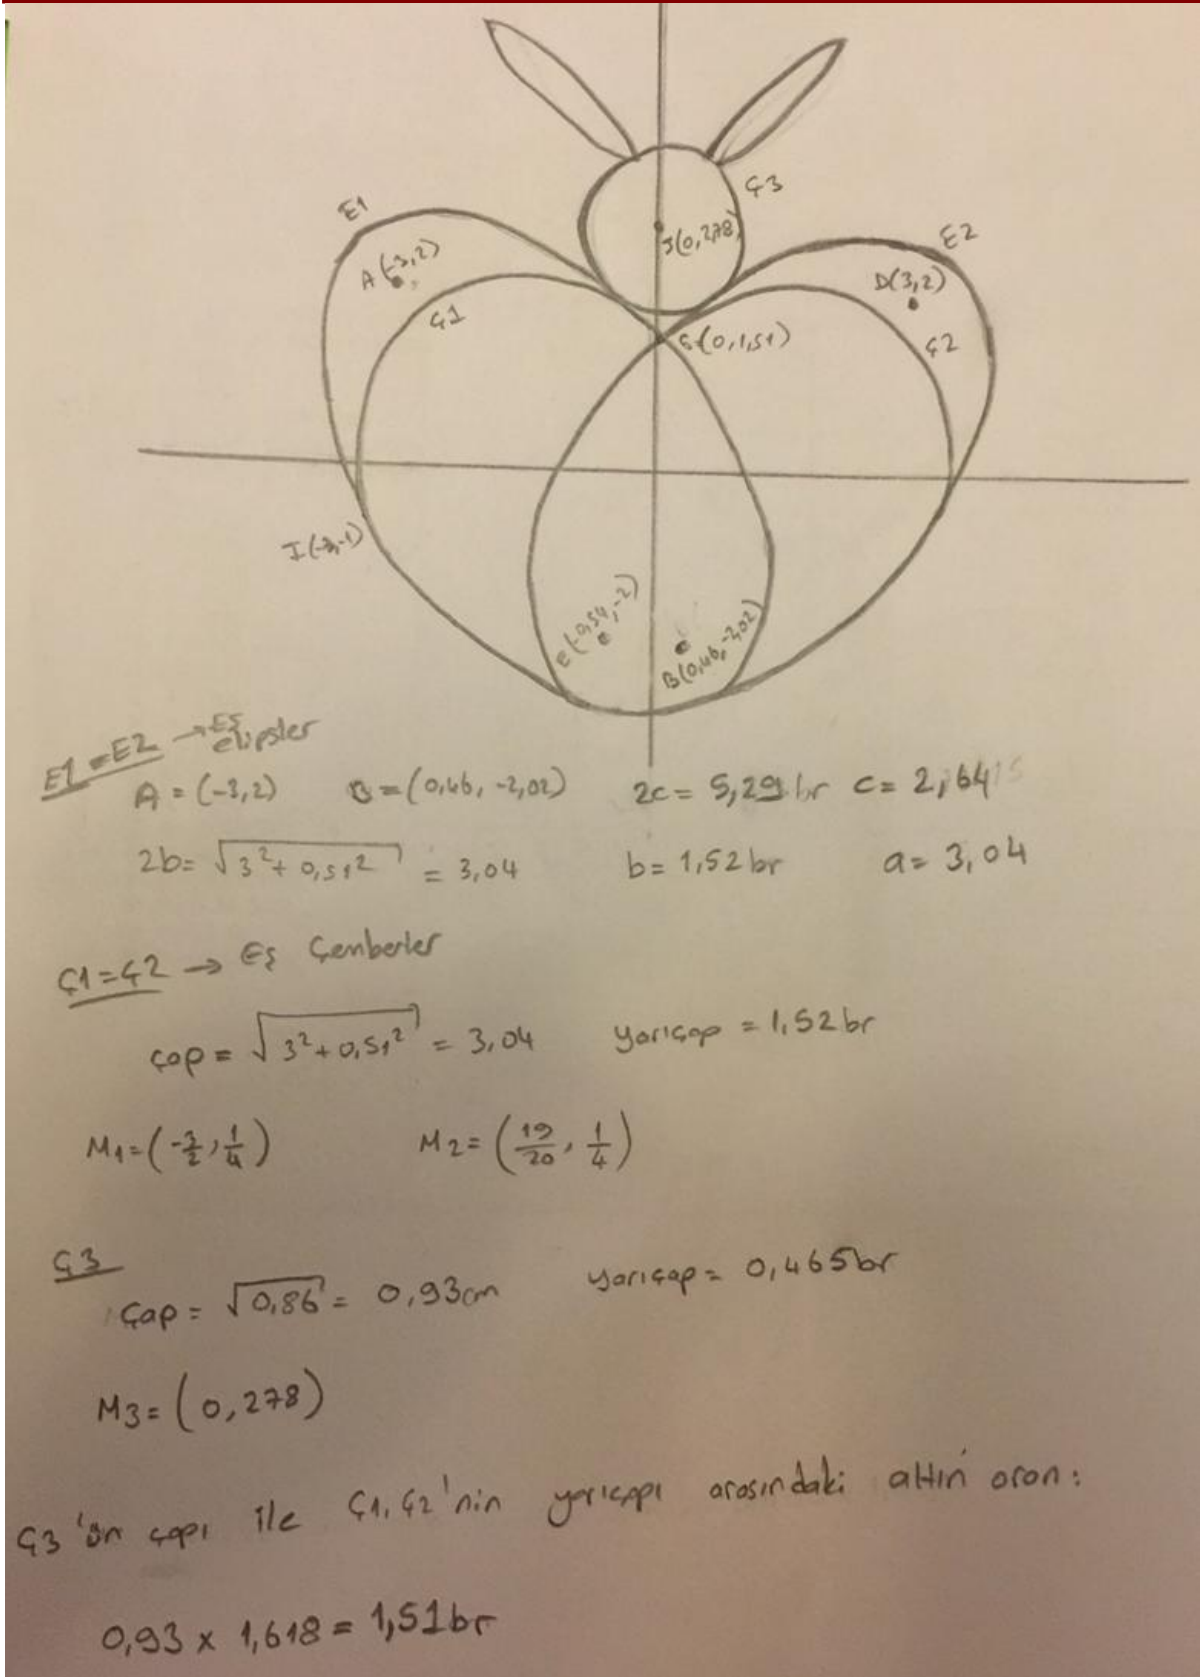 E1
Ç3
J(0,2,78)
E2
A(-3,2)
D(3,2)
Ç1
G(0,1,51)
Ç2
I(-3,-1)
E(-0,54,-2)
B(0,46,-2,02)
E1=E2 → Eş elipsler
A = (-3,2) B = (0,46, -2,02) 2c = 5,29 br c = 2,64
2b = √3²+0,51² = 3,04 b = 1,52 br a = 3,04
Ç1=Ç2 → Eş Çemberler
Çap = √3²+0,51² = 3,04 yarıçap = 1,52 br
M1=(-3/2, 1/4) M2=(19/20, 1/4)
Ç3
Çap = √0,86 = 0,93cm yarıçap = 0,465br
M3=(0,278)
Ç3'ün çapı ile Ç1,Ç2'nin yarıçapı arasındaki altın oran:
0,93 x 1,618 = 1,51br